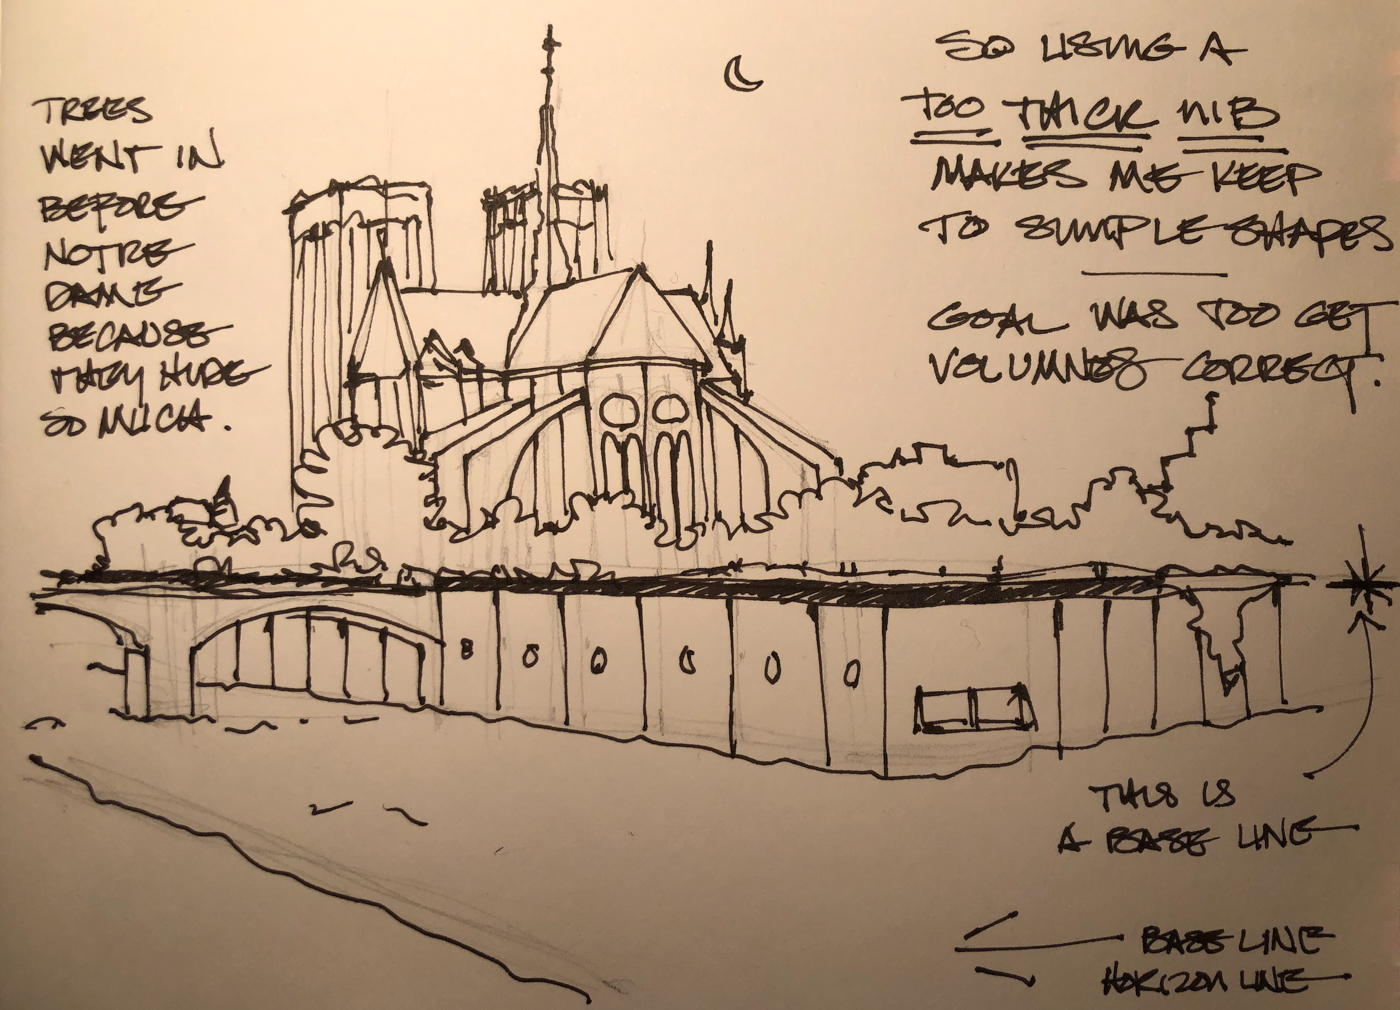 TREES
WENT IN
BEFORE
NOTRE
DAME
BECAUSE
THEY HIDE
SO MUCH.
SO USING A
TOO THICK NIB
MAKES ME KEEP
TO SIMPLE SHAPES
GOAL WAS TOO GET
VOLUMNES CORRECT.
THIS IS
A BASE LINE
BASE LINE
HORIZON LINE